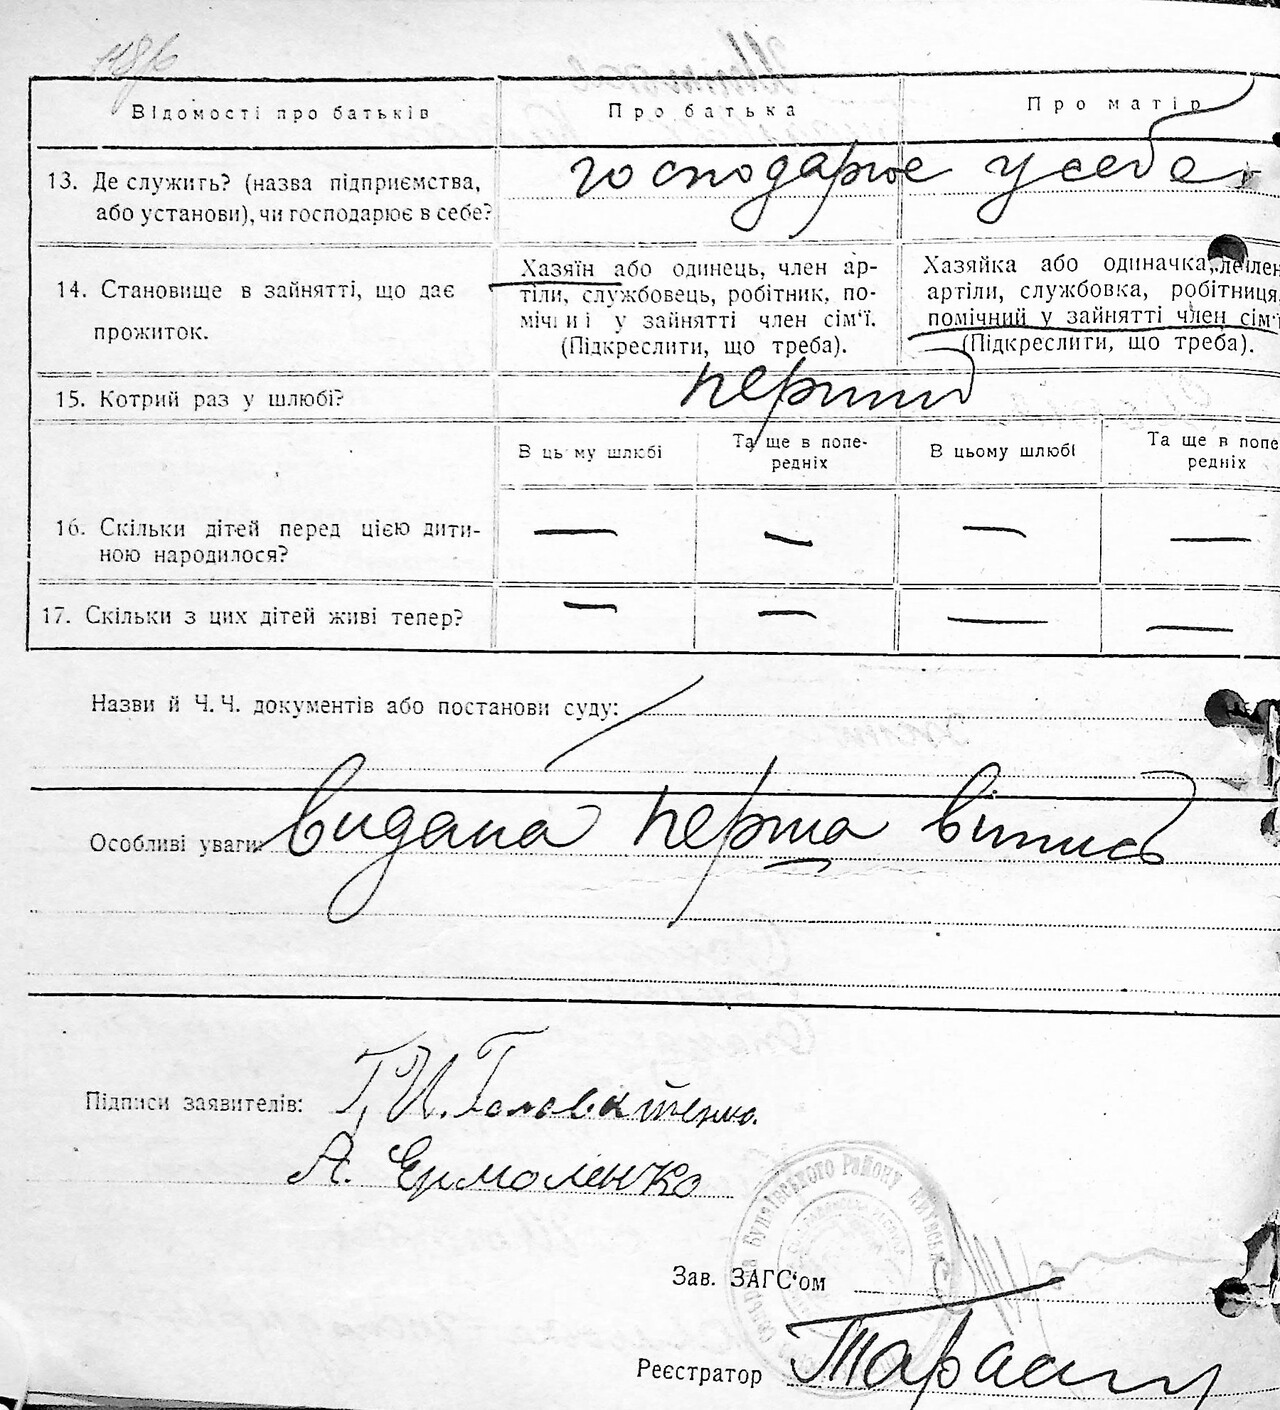 Відомості про батьків
Про батька
Про матір
13. Де служить? (назва підприємства,
або установи), чи господарює в себе?
господарює у себе
14. Становище в зайнятті, що дає
прожиток.
Хазяїн або одинець, член ар-
тіли, службовець, робітник, по-
мічний у зайнятті член сім'ї.
(Підкреслити, що треба).
Хазяйка або одиначка,
артіли, службовка, робітниця,
помічний у зайнятті член сім'ї
(Підкреслити, що треба).
15. Котрий раз у шлюбі?
перший
В цьому шлюбі
Та ще в попе-
редніх
В цьому шлюбі
Та ще в попе
редніх
16. Скільки дітей перед цією дити-
ною народилося?
— — — —
17. Скільки з цих дітей живі тепер?
— — — —
Назви й Ч.Ч. документів або постанови суду:
Особливі уваги: видана перша випись
Підписи заявителів: Г. И. Головатенко.
А. Єрмоленко
Зав. ЗАГС'ом
Реєстратор